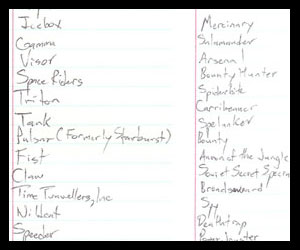 Icebox
Gamma
Visor
Space Riders
Triton
Tank
Pulsar (Formerly Starburst)
Fist
Claw
Time Tunnellers, Inc
Speeder
Mercinary
Salamander
Arsenal
Bounty Hunter
Spiderbite
Carribeaner
Spelunker
Bounty
of the Jungle
Soviet Secret
Broadsword
Spy
Deathtrap